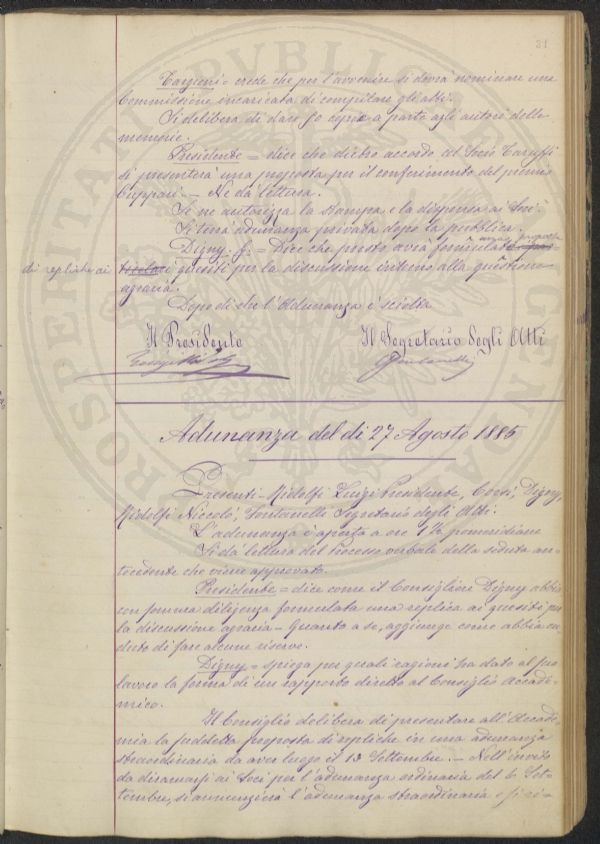 31
Targioni = crede che per l'avvenire si dovrà nominare una
Commissione incaricata di compilare gli atti.
Si delibera di dare 50 copie a parte agli autori delle
memorie.
Presidente = dice che dietro accordo col Socio Caruso
si presenterà una proposta per il conferimento del premio
Cuppari. — Ne dà lettura.
Se ne autorizza la stampa e la dispensa ai Soci.
Si terrà adunanza privata dopo la pubblica.
Digny = Dice che presto avrà formulate proposte
di repliche ai quesiti per la discussione intorno alla questione
agraria.
Dopo di che l'Adunanza è sciolta
Il Presidente Il Segretario degli Atti
Adunanza del dì 27 Agosto 1885
Presenti = Ridolfi Luigi Presidente, Digny,
Ridolfi Niccolò, Fontanelli Segretario degli Atti.
L'adunanza è aperta a ore 1½ pomeridiane
Si dà lettura del Processo verbale della seduta an-
tecedente che viene approvato.
Presidente = dice come il Consigliere Digny abbia
con somma diligenza formulata una replica ai quesiti per
la discussione agraria — Quanto a se, aggiunge come abbia cre-
duto di fare alcune riserve.
Digny = spiega per quali cagioni ha dato al suo
lavoro la forma di un rapporto diretto al Consiglio Accade-
mico.
Il Consiglio delibera di presentare all'Accade-
mia la suddetta proposta di repliche in una adunanza
straordinaria da aver luogo il 13 Settembre. — Nell'invito
da diramarsi ai Soci per l'adunanza ordinaria del 6 Set-
tembre, si annunzierà l'adunanza straordinaria e si ri-
PROSPERITATI PVBLICAE AVGENDAE